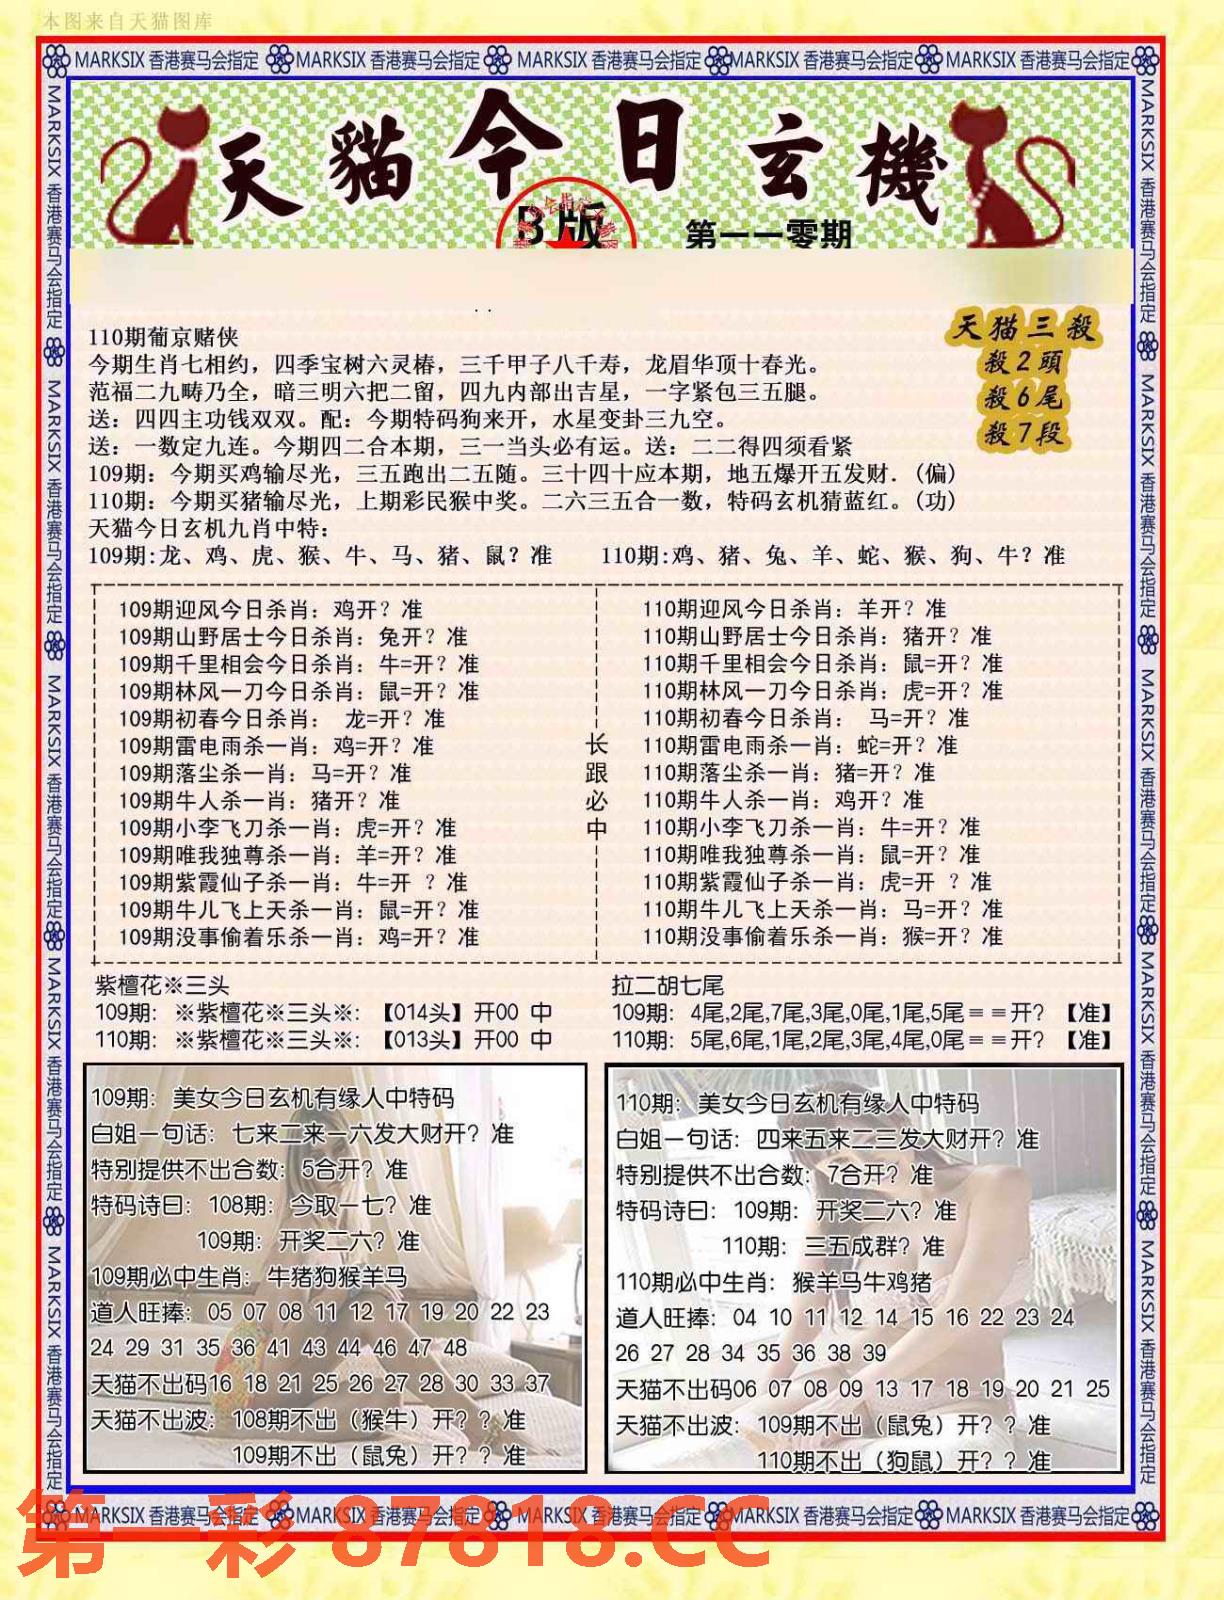 本图来自天猫图库
MARKSIX 香港赛马会指定 MARKSIX 香港赛马会指定 MARKSIX 香港赛马会指定 MARKSIX 香港赛马会指定 MARKSIX 香港赛马会指定
MARKSIX 香港赛马会指定 MARKSIX 香港赛马会指定 MARKSIX 香港赛马会指定 MARKSIX 香港赛马会指定 MARKSIX 香港赛马会指定
天貓今日玄機
B版
第一一零期
天猫三殺
殺2頭
殺6尾
殺7段
110期葡京赌侠
今期生肖七相约，四季宝树六灵椿，三千甲子八千寿，龙眉华顶十春光。
范福二九畴乃全，暗三明六把二留，四九内部出吉星，一字紧包三五腿。
送：四四主功钱双双。配：今期特码狗来开，水星变卦三九空。
送：一数定九连。今期四二合本期，三一当头必有运。送：二二得四须看紧
109期：今期买鸡输尽光，三五跑出二五随。三十四十应本期，地五爆开五发财．(偏)
110期：今期买猪输尽光，上期彩民猴中奖。二六三五合一数，特码玄机猜蓝红。(功)
天猫今日玄机九肖中特：
109期:龙、鸡、虎、猴、牛、马、猪、鼠？准 110期:鸡、猪、兔、羊、蛇、猴、狗、牛？准
109期迎风今日杀肖：鸡开？准
109期山野居士今日杀肖：兔开？准
109期千里相会今日杀肖：牛=开？准
109期林风一刀今日杀肖：鼠=开？准
109期初春今日杀肖： 龙=开？准
109期雷电雨杀一肖：鸡=开？准
109期落尘杀一肖：马=开？准
109期牛人杀一肖：猪开？准
109期小李飞刀杀一肖：虎=开？准
109期唯我独尊杀一肖：羊=开？准
109期紫霞仙子杀一肖：牛=开 ？准
109期牛儿飞上天杀一肖：鼠=开？准
109期没事偷着乐杀一肖：鸡=开？准
长跟必中
110期迎风今日杀肖：羊开？准
110期山野居士今日杀肖：猪开？准
110期千里相会今日杀肖：鼠=开？准
110期林风一刀今日杀肖：虎=开？准
110期初春今日杀肖： 马=开？准
110期雷电雨杀一肖：蛇=开？准
110期落尘杀一肖：猪=开？准
110期牛人杀一肖：鸡开？准
110期小李飞刀杀一肖：牛=开？准
110期唯我独尊杀一肖：鼠=开？准
110期紫霞仙子杀一肖：虎=开 ？准
110期牛儿飞上天杀一肖：马=开？准
110期没事偷着乐杀一肖：猴=开？准
紫檀花※三头
109期：※紫檀花※三头※：【014头】开00 中
110期：※紫檀花※三头※：【013头】开00 中
拉二胡七尾
109期：4尾,2尾,7尾,3尾,0尾,1尾,5尾＝＝开？【准】
110期：5尾,6尾,1尾,2尾,3尾,4尾,0尾＝＝开？【准】
109期：美女今日玄机有缘人中特码
白姐一句话：七来二来一六发大财开？准
特别提供不出合数：5合开？准
特码诗曰：108期：今取一七？准
109期：开奖二六？准
109期必中生肖：牛猪狗猴羊马
道人旺捧：05 07 08 11 12 17 19 20 22 23
24 29 31 35 36 41 43 44 46 47 48
天猫不出码16 18 21 25 26 27 28 30 33 37
天猫不出波：108期不出（猴牛）开？？准
109期不出（鼠兔）开？？准
110期：美女今日玄机有缘人中特码
白姐一句话：四来五来二三发大财开？准
特别提供不出合数：7合开？准
特码诗曰：109期：开奖二六？准
110期：三五成群？准
110期必中生肖：猴羊马牛鸡猪
道人旺捧：04 10 11 12 14 15 16 22 23 24
26 27 28 34 35 36 38 39
天猫不出码06 07 08 09 13 17 18 19 20 21 25
天猫不出波：109期不出（鼠兔）开？？准
110期不出（狗鼠）开？？准
MARKSIX 香港赛马会指定 MARKSIX 香港赛马会指定 MARKSIX 香港赛马会指定 MARKSIX 香港赛马会指定 MARKSIX 香港赛马会指定
MARKSIX 香港赛马会指定 MARKSIX 香港赛马会指定 MARKSIX 香港赛马会指定 MARKSIX 香港赛马会指定 MARKSIX 香港赛马会指定
第一彩 87818.CC